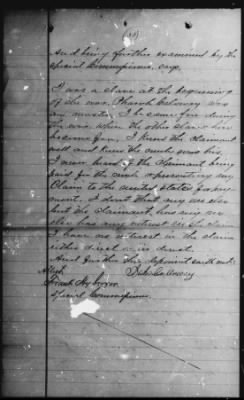 (10)
And being further examined by the
Special Commissioner, says
I was a slave at the beginning
of the war. Pharoh Calloway was
my master. I became free during
the war, when the other slaves here
became free. I knew the claimant
well and knew the mule was his.
I never heard of the claimant being
paid for the mule or presenting any
Claim to the united States for pay-
ment. I dont think any one else
but the Claimant, has any
else has any interest in the claim
I have no interest in the claim
either direct or in direct.
And further this deponent saith not.
Attest Calloway
Frank
Special Commissioner